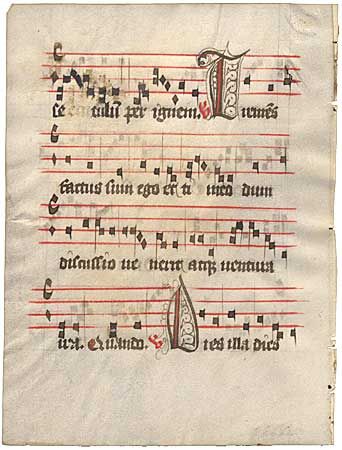 se culũ per ignem. ℣ Tremẽs
factus sum ego et ti meo dum
discussio ve nerit atqꝫ ventura
ira. Quando. ℣ Dies illa dies